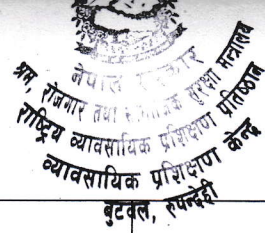 नेपाल सरकार
श्रम, रोजगार तथा सामाजिक सुरक्षा मन्त्रालय
राष्ट्रिय व्यावसायिक प्रशिक्षण प्रतिष्ठान
व्यावसायिक प्रशिक्षण केन्द्र
बुटवल, रुपन्देही